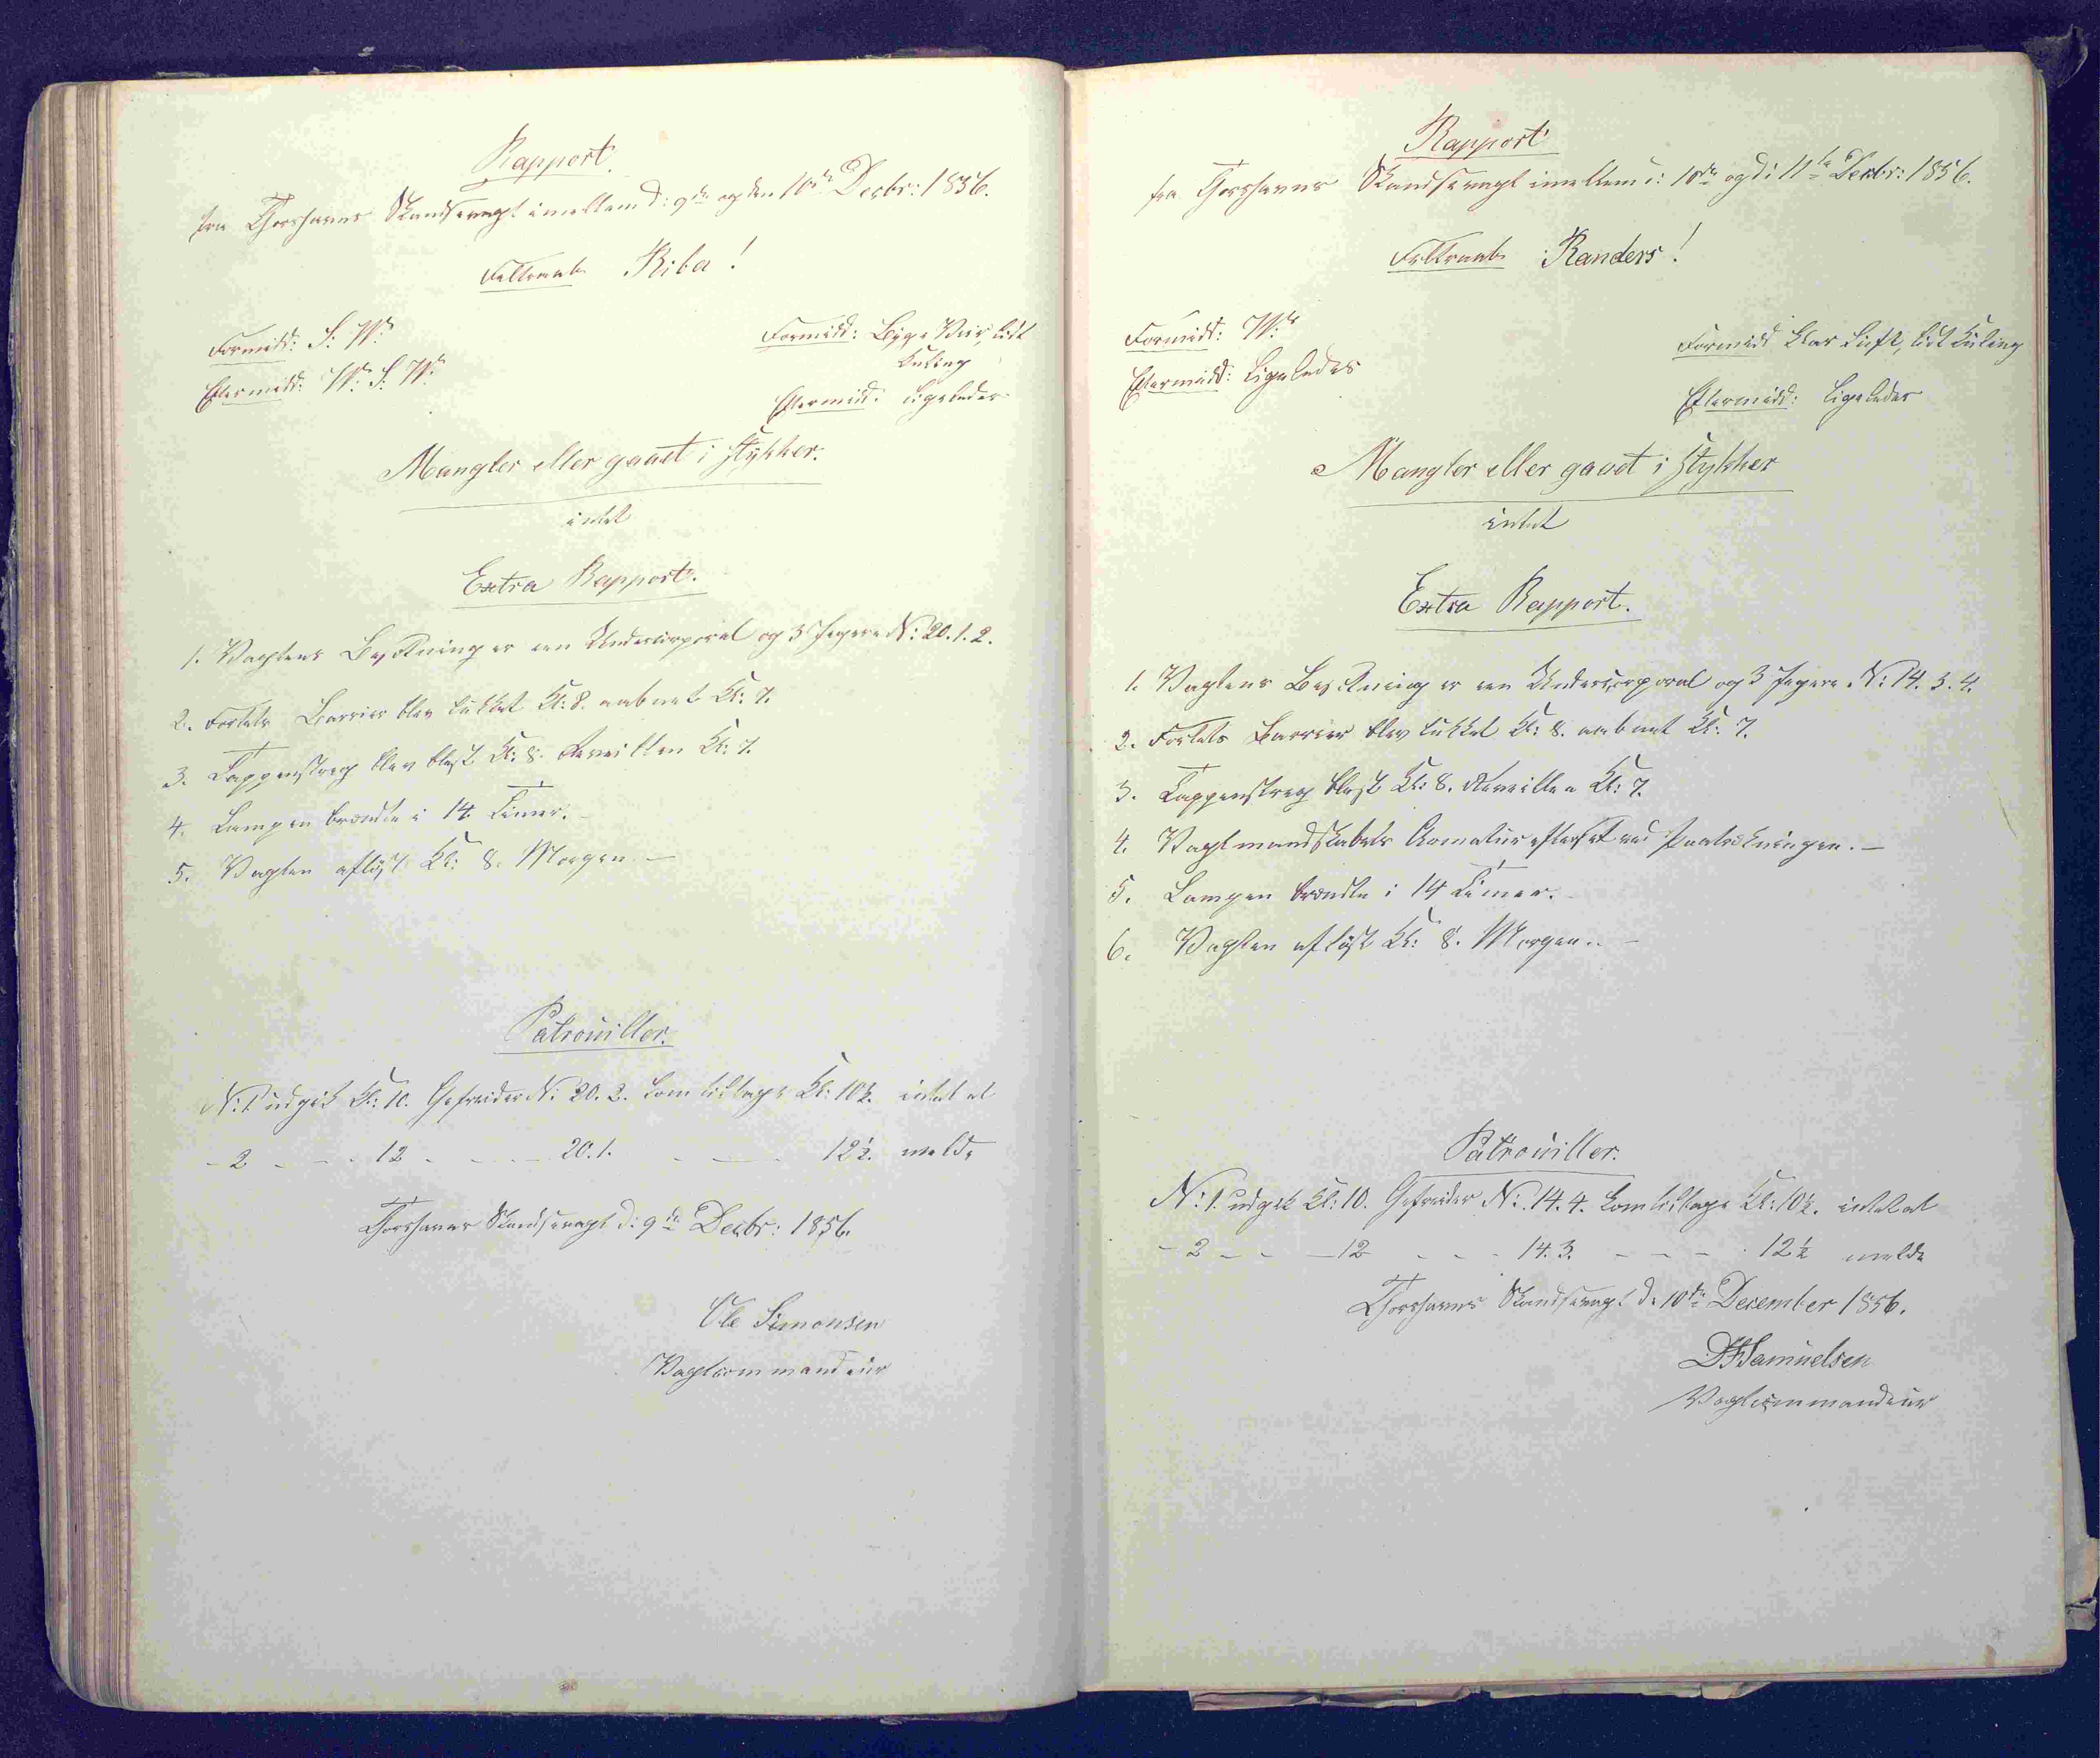 Rapport.
fra Thorshavns Skandsevagt imellem d: 9de og den 10de Decbr: 1856.
Feltraab Ribe!
Formidd: S: W:
Eftermidd: W: S: W:
Formidd: Byge Veir, lidt
Kuling
Eftermidd: ligeledes
Mangler eller gaaet i Stykker.
intet
Extra Rapport.
1. Vagtens Besætning er een Undercorporal og 3 Jegere N: 20. 1. 2.
2. Fortets Barrier blev lukket Kl: 8. aabnet Kl: 7.
3. Tappenstreg blev blæst Kl: 8. Reveillen Kl: 7.
4. Lampen brændte i 14 Timer. —
5. Vagten afløst Kl: 8. Morgen. —
Patrouiller.
N: 1. udgik Kl: 10. Gefreider N: 20. 2. kom tilbage Kl: 10½. intet at
- 2 - - - 12 - - - 20. 1. - - - 12½. melde
Thorshavns Skandsevagt d: 9de Decbr: 1856.
Ole Simonsen
Vagtcommandeur
Rapport
fra Thorshavns Skandsevagt imellem d: 10de og d: 11te Decbr: 1856.
Feltraab Randers!
Formidd: W:
Eftermidd: ligeledes
Formidd klar Luft, lidt Kuling
Eftermidd: ligeledes
Mangler eller gaaet i Stykker
intet
Extra Rapport.
1. Vagtens Besætning er een Undercorporal og 3 Jegere N: 14. 3. 4.
2. Fortets Barrier blev lukket Kl: 8. aabnet Kl: 7.
3. Tappenstreg blæst Kl: 8. Reveillen Kl: 7.
4. Vagtmandskabets Armatur efterset ved Paatrækningen. —
5. Lampen brændte i 14 Timer. —
6. Vagten afløst Kl: 8. Morgen. —
Patrouiller.
N: 1. udgik Kl: 10. Gefreider N: 14. 4. kom tilbage Kl: 10½. intet at
- 2 - - - 12 - - - 14. 3. - - - 12½ melde
Thorshavns Skandsevagt d: 10de December 1856.
Samuelsen
Vagtcommandeur